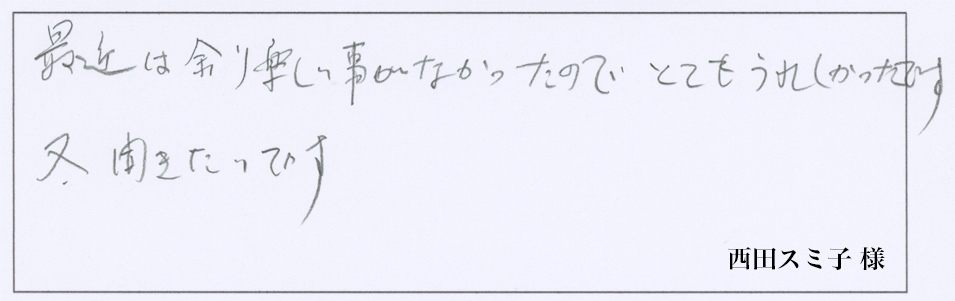 最近は余り楽しい事がなかったのでとてもうれしかったです
又聞きたいです
西田スミ子 様